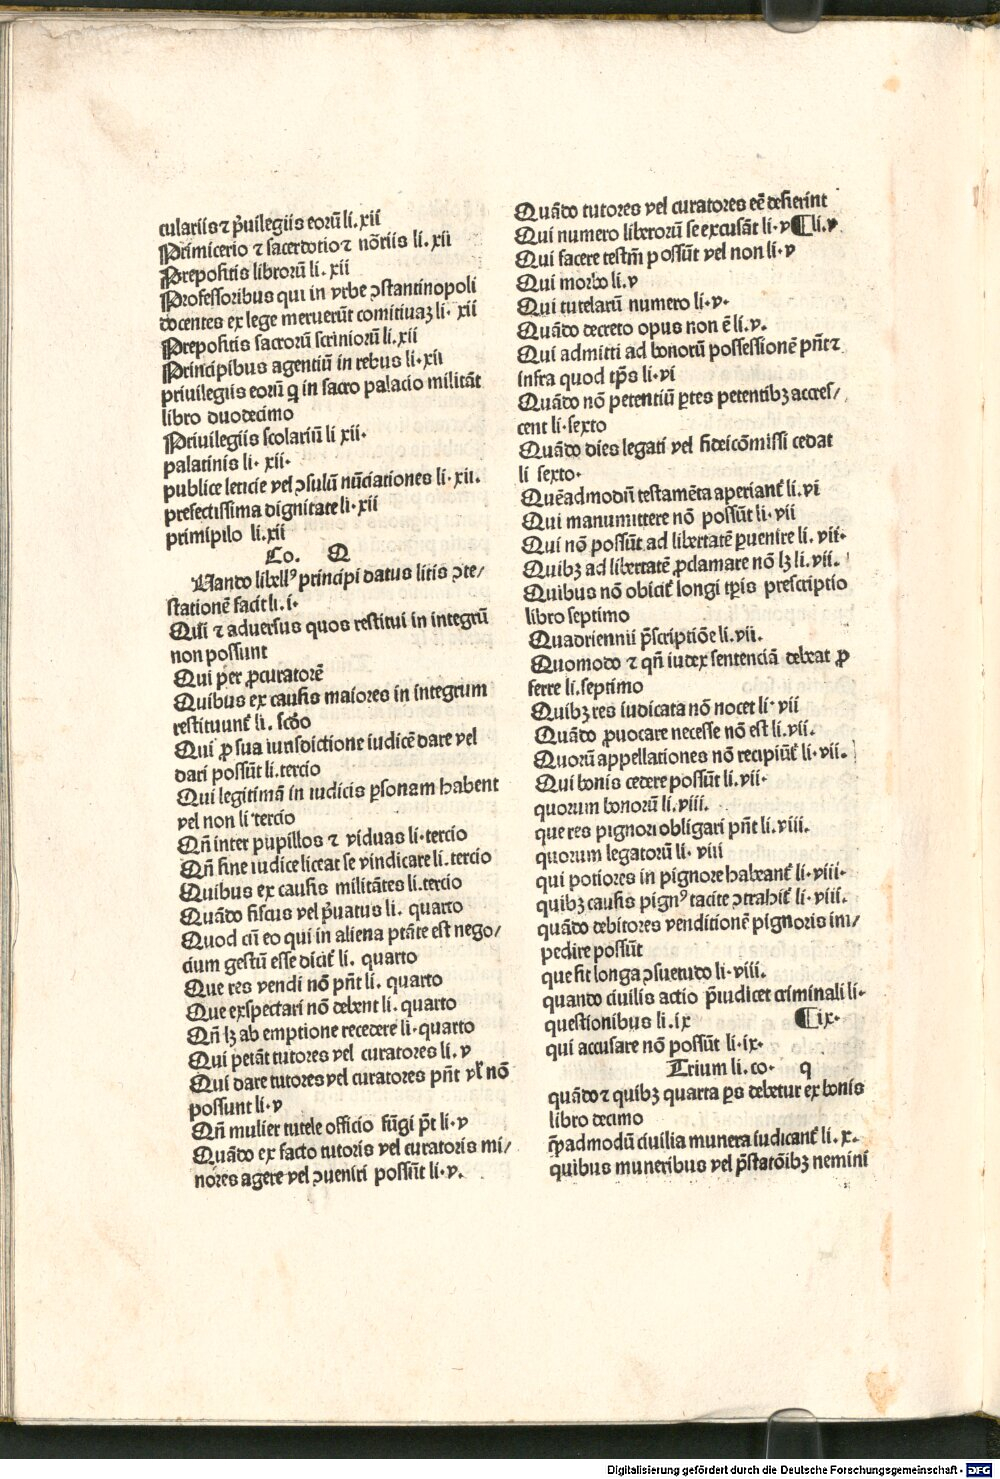 culariis ⁊ p̄uilegiis eorū li. xii
Primicerio ⁊ sacerdotio ⁊ nōriis li. xii
Prepositis librorū li. xii
Professoribus qui in vrbe ↄstantinopoli
docentes ex lege meruerūt comitiuaꝫ li. xii
Prepositis sacrorū scriniorū li. xii
Principibus agentiū in rebus li. xii
priuilegiis eorū q̄ in sacro palacio militāt
libro duodecimo
Priuilegiis scolariū li xii.
palatinis li. xii.
publice leticie vel ↄsulū nūciationes li. xii.
prefectissima dignitate li. xii
primipilo li. xii
Co. Q
Uando libellꝰ principi datus litis ↄte/
stationē facit li. i.
Qui ⁊ aduersus quos restitui in integrū
non possunt
Qui per ꝓcuratorē
Quibus ex causis maiores in integrum
restituunt᷑ li. scd̄o
Qui ꝓ sua iurisdictione iudicē dare vel
dari possūt li. tercio
Qui legitimā in iudicis ꝑsonam habent
vel non li tercio
Qn̄ inter pupillos ⁊ viduas li. tercio
Qn̄ sine iudice liceat se vindicare li. tercio
Quibus ex causis militātes li. tercio
Quādo fiscus vel p̄uatus li. quarto
Quod cū eo qui in aliena ptāte est nego/
cium gestū esse dicit᷑ li. quarto
Que res vendi nō pn̄t li. quarto
Que exspectari nō debent li. quarto
Qn̄ lꝫ ab emptione recedere li. quarto
Qui petāt tutores vel curatores li. v
Qui dare tutores vel curatores pn̄t vl̄ nō
possunt li. v
Qn̄ mulier tutele officio fūgi pt̄ li. v
Quādo ex facto tutoris vel curatoris mi/
nores agere vel ↄueniri possūt li. v.
Quādo tutores vel curatores eē desierint
Qui numero liberorū se excusāt li. v ¶ li. v
Qui facere testm̄ possūt vel non li. v
Qui morbo li. v
Qui tutelarū numero li. v.
Quādo decreto opus non ē li. v.
Qui admitti ad bonorū possessionē pn̄t ⁊
infra quod tp̄s li. vi
Quādo nō petentiū ꝑtes petentibꝫ accres/
cent li. sexto
Quādo dies legati vel fideicōmissi cedat
li sexto.
Quēadmodū testamēta aperiant᷑ li. vi
Qui manumittere nō possūt li. vii
Qui nō possūt ad libertatē ꝑuenire li. vii.
Quibꝫ ad libertatē ꝓclamare nō lꝫ li. vii.
Quibus nō obicit᷑ longi tꝑis prescriptio
libro septimo
Quadriennii p̄scriptiōe li. vii.
Quomodo ⁊ qn̄ iudex sentenciā debeat ꝓ
ferre li. septimo
Quibꝫ res iudicata nō nocet li. vii
Quādo ꝓuocare necesse nō est li. vii.
Quorū appellationes nō recipiūt᷑ li. vii.
Qui bonis cedere possūt li. vii.
quorum bonorū li. viii.
que res pignori obligari pn̄t li. viii.
quorum legatorū li. viii
qui potiores in pignore habeant᷑ li. viii.
quibꝫ causis pignꝰ tacite ↄtrahit᷑ li. viii.
quādo debitores venditionē pignoris im/
pedire possūt
que sit longa ↄsuetudo li. viii.
quando ciuilis actio p̄iudicet criminali li.
questionibus li. ix ¶ ix.
qui accusare nō possūt li. ix.
Trium li. co. q
quādo ⁊ quibꝫ quarta ꝑs debetur ex bonis
libro decimo
q̄padmodū ciuilia munera iudicant᷑ li. x.
quibus muneribus vel p̄statōibꝫ nemini
Digitalisierung gefördert durch die Deutsche Forschungsgemeinschaft - DFG